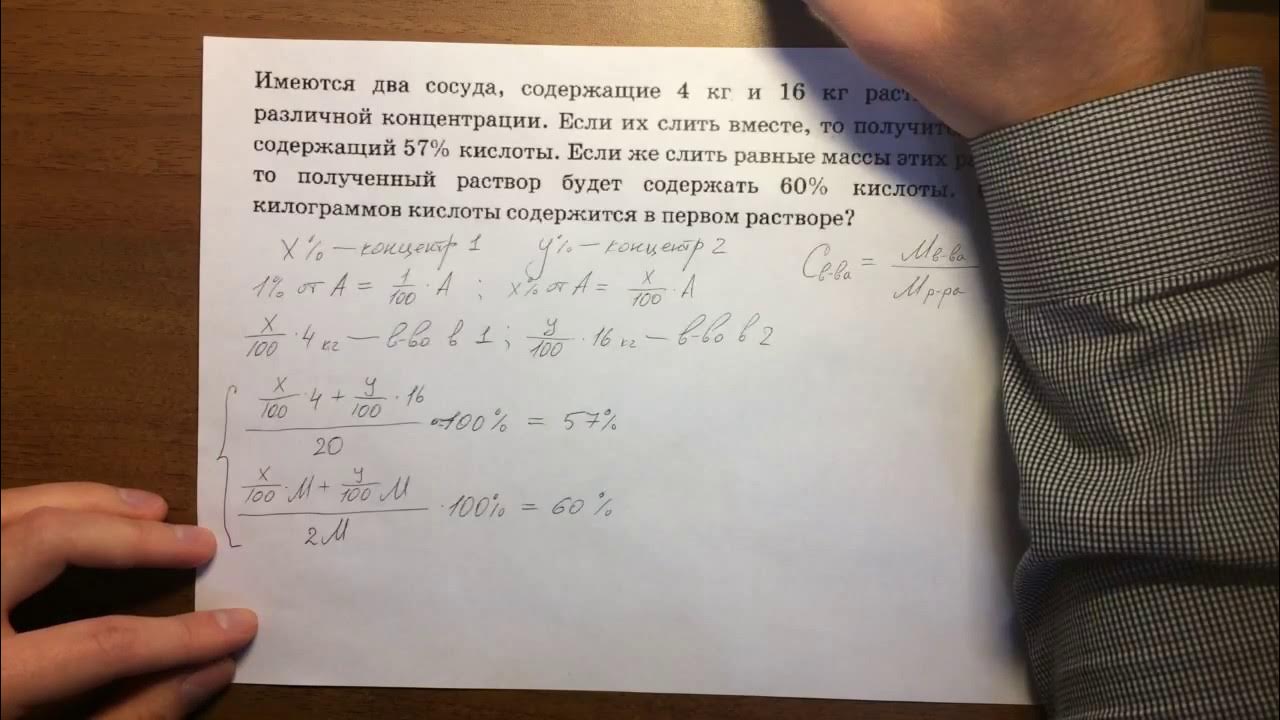 Имеются два сосуда, содержащие 4 кг и 16 кг
различной концентрации. Если их слить вместе, то
содержащий 57% кислоты. Если же слить равные массы этих
то полученный раствор будет содержать 60% кислоты.
килограммов кислоты содержится в первом растворе?
X% — концентр 1 y% — концентр 2
Cв-ва = Mв-ва / Mр-ра
1% от A = 1/100 · A ; x% от A = x/100 · A
x/100 · 4 кг — в-во в 1 ; y/100 · 16 кг — в-во в 2
(x/100 · 4 + y/100 · 16) / 20 · 100% = 57%
(x/100 · M + y/100 M) / 2M · 100% = 60%